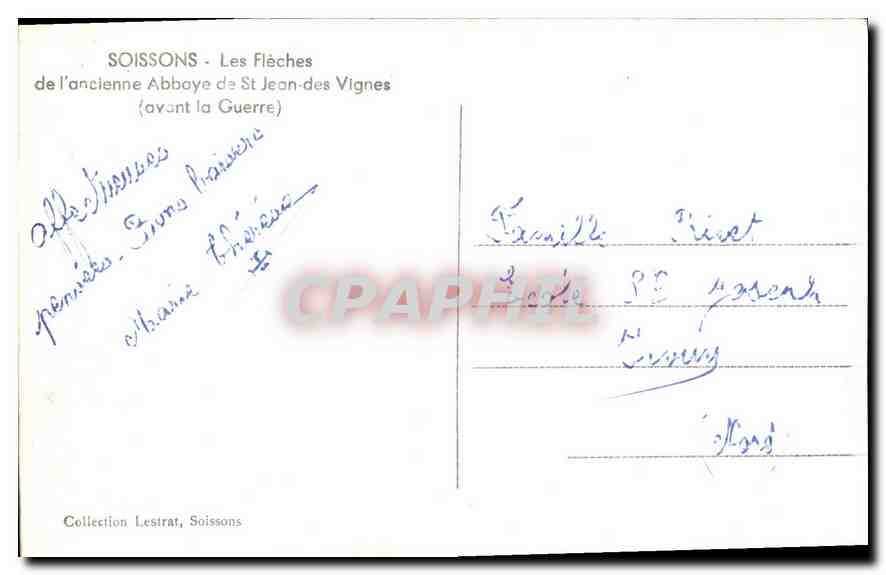 SOISSONS - Les Flèches
de l'ancienne Abbaye de St Jean-des-Vignes
(avant la Guerre)
affectueuses
pensées.
Marie Thérèse
Famille
Ecole St Joseph
(Nord)
CPAPHIL
Collection Lestrat, Soissons